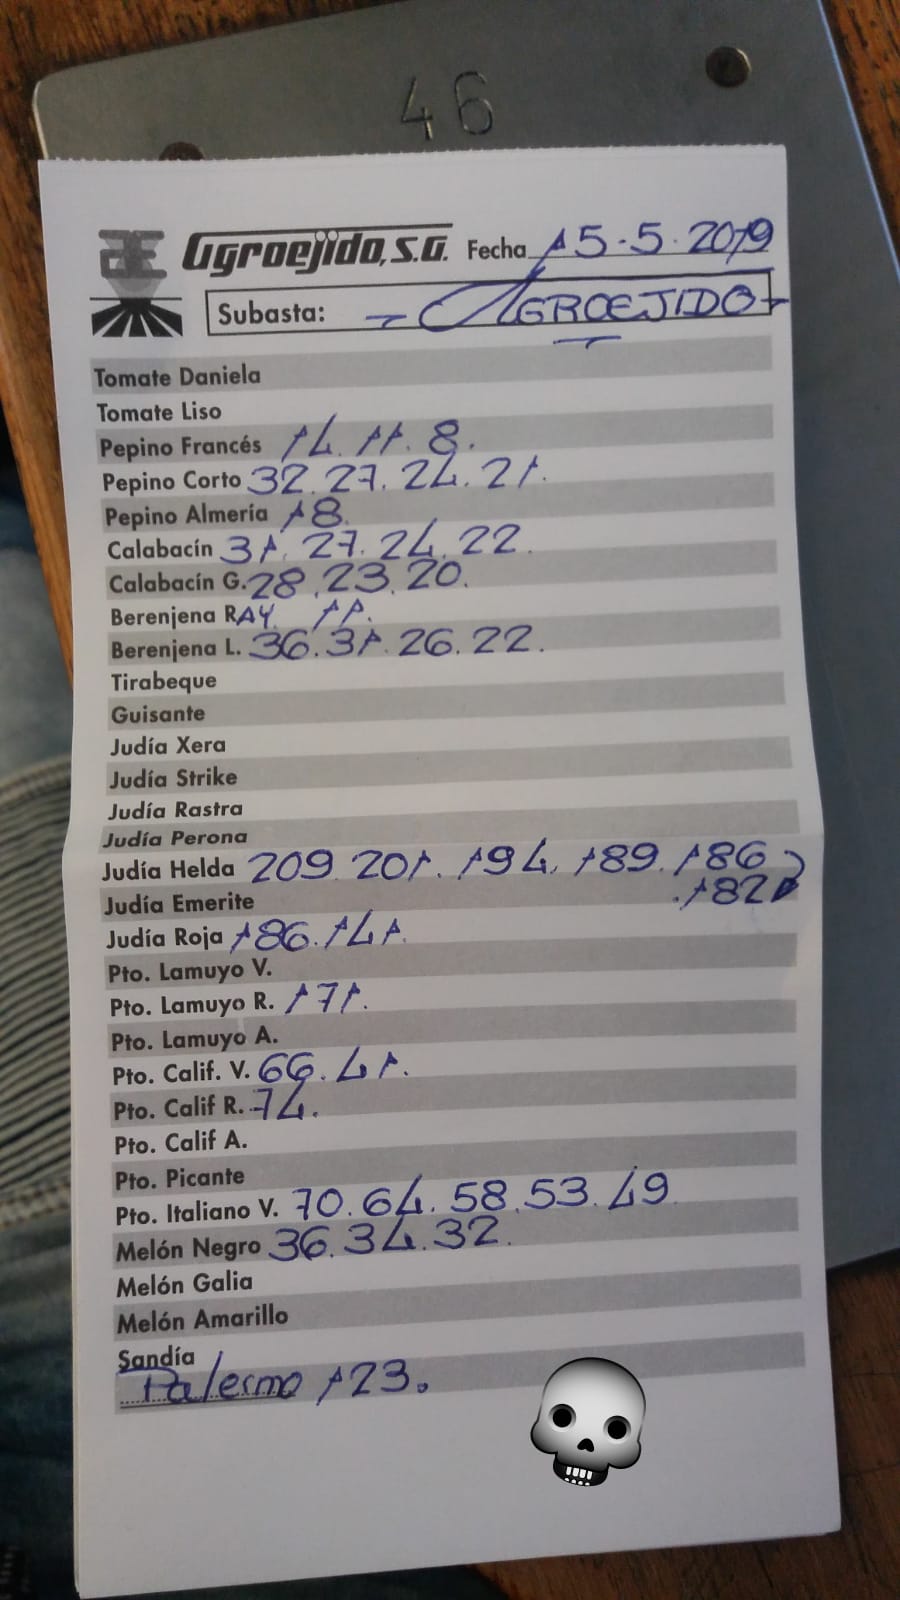 46
Agroejido, S.A. Fecha 15-5-2019
Subasta: - AGROEJIDO -
Tomate Daniela
Tomate Liso
Pepino Francés 14. 11. 8.
Pepino Corto 32. 27. 24. 21.
Pepino Almería 18.
Calabacín 31. 27. 24. 22.
Calabacín G. 28. 23. 20.
Berenjena RAY. 11.
Berenjena L. 36. 31. 26. 22.
Tirabeque
Guisante
Judía Xera
Judía Strike
Judía Rastra
Judía Perona
Judía Helda 209. 201. 194. 189. 186
.182
Judía Emerite
Judía Roja 186. 141.
Pto. Lamuyo V.
Pto. Lamuyo R. 171.
Pto. Lamuyo A.
Pto. Calif. V. 66. 41.
Pto. Calif R. 74.
Pto. Calif A.
Pto. Picante
Pto. Italiano V. 70. 64. 58. 53. 49
Melón Negro 36. 34. 32.
Melón Galia
Melón Amarillo
Sandía
Palermo 123.